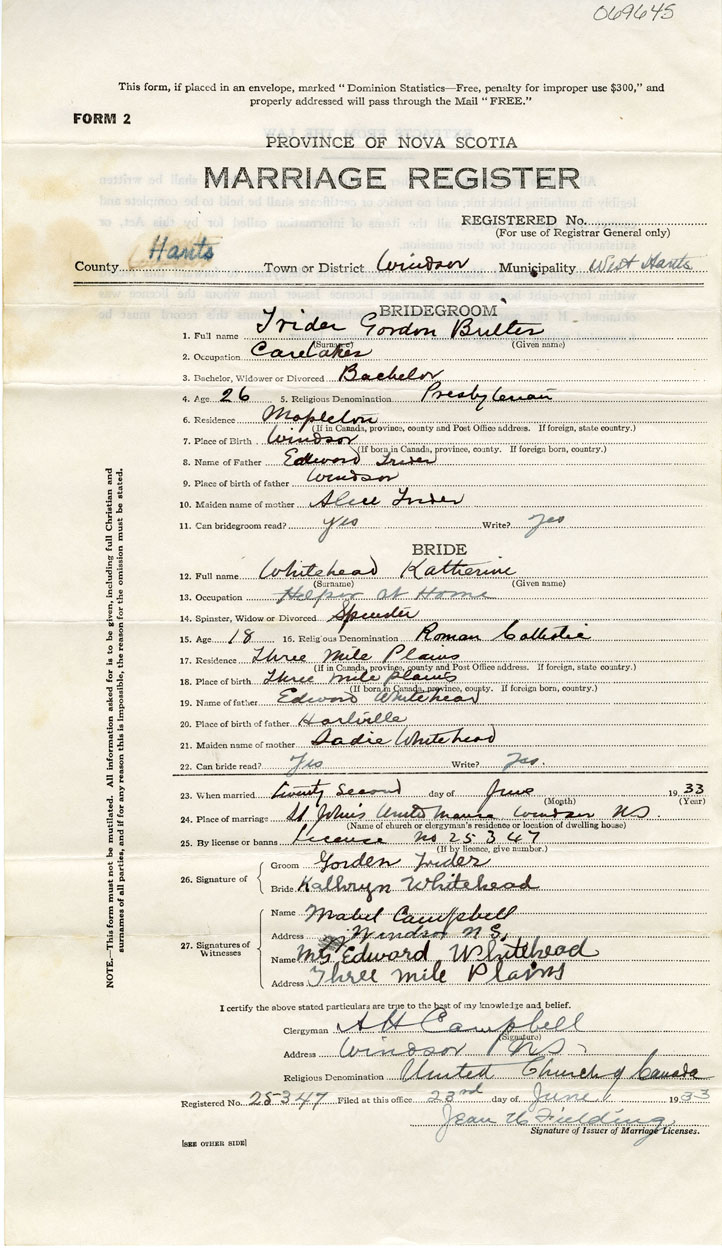 069645
This form, if placed in an envelope, marked "Dominion Statistics—Free, penalty for improper use $300," and
properly addressed will pass through the Mail "FREE."
FORM 2
PROVINCE OF NOVA SCOTIA
MARRIAGE REGISTER
REGISTERED No.
(For use of Registrar General only)
County Hants Town or District Windsor Municipality West Hants
BRIDEGROOM
1. Full name Trider Gordon Butler
(Surname) (Given name)
2. Occupation Caretaker
3. Bachelor, Widower or Divorced Bachelor
4. Age 26 5. Religious Denomination Presbyterian
6. Residence Mapleton
(If in Canada, province, county and Post Office address. If foreign, state country.)
7. Place of Birth Windsor
(If born in Canada, province, county. If foreign born, country.)
8. Name of Father Edward Trider
9. Place of birth of father Windsor
10. Maiden name of mother Alice Trider
11. Can bridegroom read? yes Write? yes
BRIDE
12. Full name Whitehead Katherine
(Surname) (Given name)
13. Occupation Helper at Home
14. Spinster, Widow or Divorced Spinster
15. Age 18 16. Religious Denomination Roman Catholic
17. Residence Three Mile Plains
(If in Canada, province, county and Post Office address. If foreign, state country.)
18. Place of birth Three mile plains
(If born in Canada, province, county. If foreign born, country.)
19. Name of father Edward Whitehead
20. Place of birth of father
21. Maiden name of mother Sadie Whitehead
22. Can bride read? Yes Write? Yes.
23. When married twenty second day of June 1933
(Month) (Year)
24. Place of marriage St John's United Manse Windsor NS.
(Name of church or clergyman's residence or location of dwelling house)
25. By license or banns License No 25347
(If by licence, give number.)
26. Signature of
Groom Gorden Trider
Bride Kathryn Whitehead
27. Signatures of Witnesses
Name Mabel Campbell
Address Windsor N.S.
Name Mrs Edward Whitehead
Address Three Mile Plains
I certify the above stated particulars are true to the best of my knowledge and belief.
Clergyman A H Campbell
(Signature)
Address Windsor NS
Religious Denomination United Church of Canada
Registered No. 25347 Filed at this office 23rd day of June 1933
Jean Fielding
Signature of Issuer of Marriage Licenses.
[SEE OTHER SIDE]
NOTE.—This form must not be mutilated. All information asked for is to be given, including full Christian and
surnames of all parties, and if for any reason this is impossible, the reason for the omission must be stated.